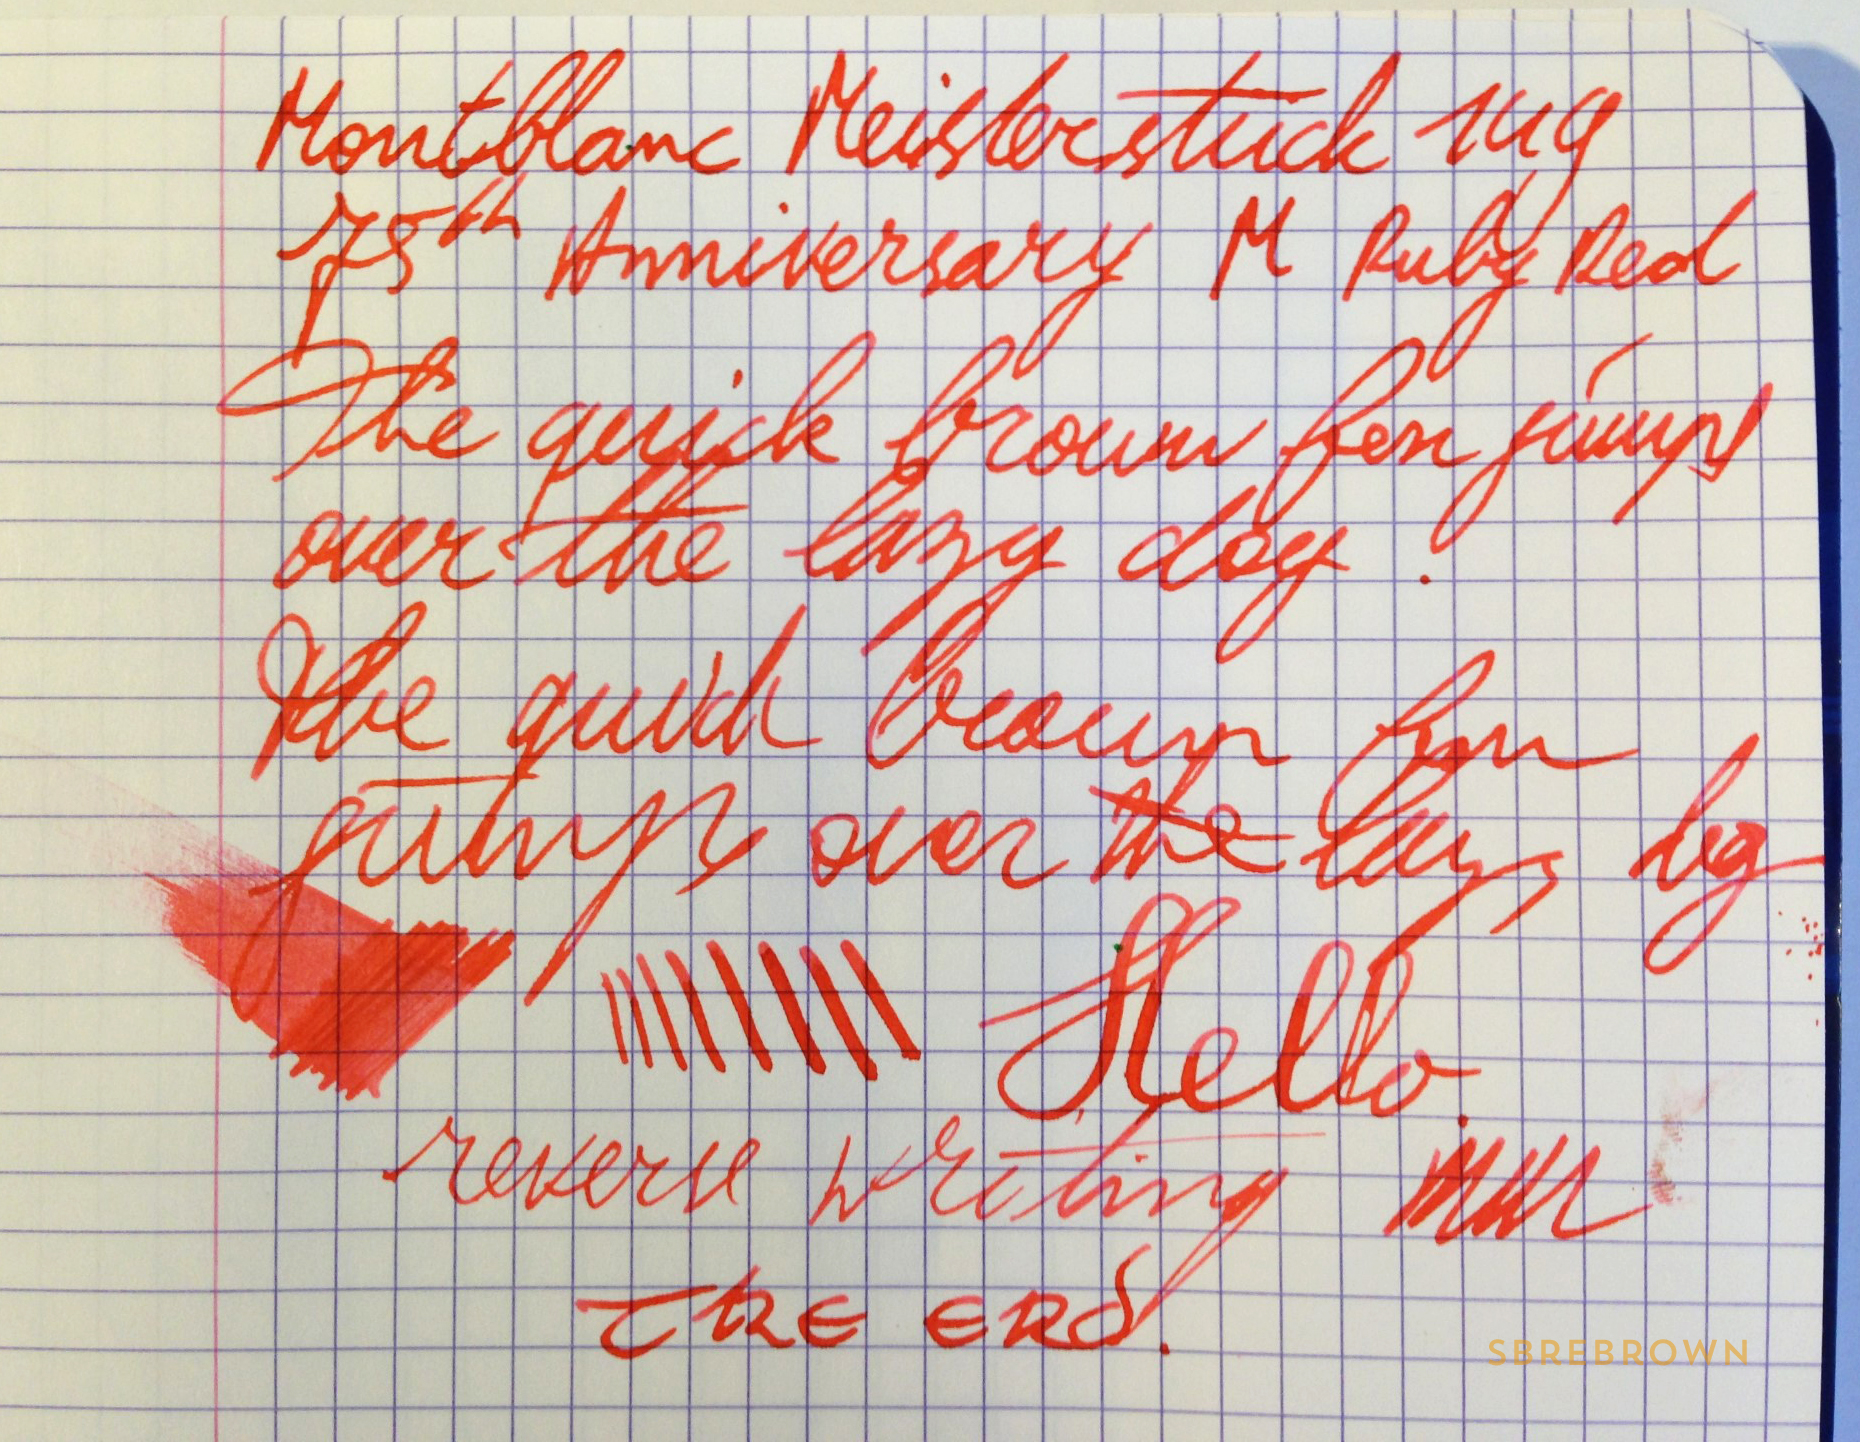 Montblanc Meisterstück 149
75th Anniversary M Ruby Red
The quick brown fox jumps
over the lazy dog.
The quick brown fox
jumps over the lazy dog
Hello.
reverse writing
THE END.
SBREBROWN